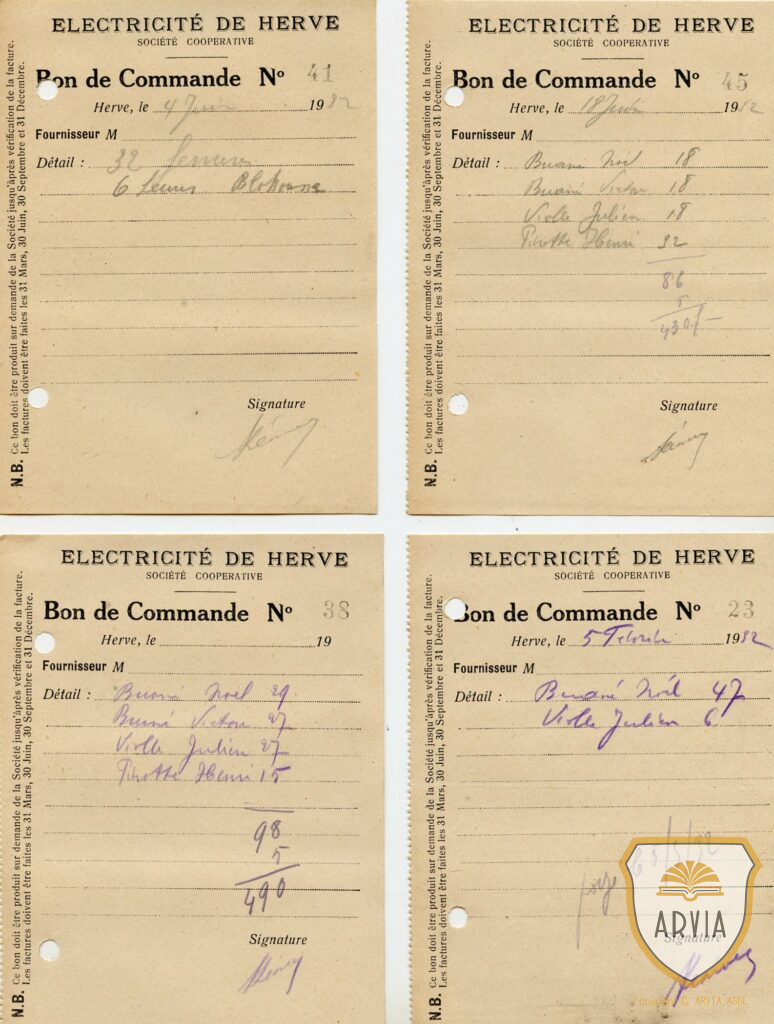 ELECTRICITÉ DE HERVE
SOCIÉTÉ COOPERATIVE
Bon de Commande Nº 41
Herve, le 4 Juin 1932
Fournisseur M
Détail : 32
6
Signature
N.B. Ce bon doit être produit sur demande de la Société jusqu'après vérification de la facture.
Les factures doivent être faites les 31 Mars, 30 Juin, 30 Septembre et 31 Décembre.
ELECTRICITÉ DE HERVE
SOCIÉTÉ COOPERATIVE
Bon de Commande Nº 45
Herve, le 18 Juin 1932
Fournisseur M
Détail : Noël 18
Victor 18
Violle Julien 18
Pirotte Henri 32
86
5
430/-
Signature
N.B. Ce bon doit être produit sur demande de la Société jusqu'après vérification de la facture.
Les factures doivent être faites les 31 Mars, 30 Juin, 30 Septembre et 31 Décembre.
ELECTRICITÉ DE HERVE
SOCIÉTÉ COOPERATIVE
Bon de Commande Nº 38
Herve, le 19
Fournisseur M
Détail : Noël 29
Victor 27
Violle Julien 27
Pirotte Henri 15
98
5
490
Signature
N.B. Ce bon doit être produit sur demande de la Société jusqu'après vérification de la facture.
Les factures doivent être faites les 31 Mars, 30 Juin, 30 Septembre et 31 Décembre.
ELECTRICITÉ DE HERVE
SOCIÉTÉ COOPERATIVE
Bon de Commande Nº 23
Herve, le 5 1932
Fournisseur M
Détail : Noël 47
Violle Julien 6
Signature
N.B. Ce bon doit être produit sur demande de la Société jusqu'après vérification de la facture.
Les factures doivent être faites les 31 Mars, 30 Juin, 30 Septembre et 31 Décembre.
ARVIA
Copyright © ARVIA ASBL